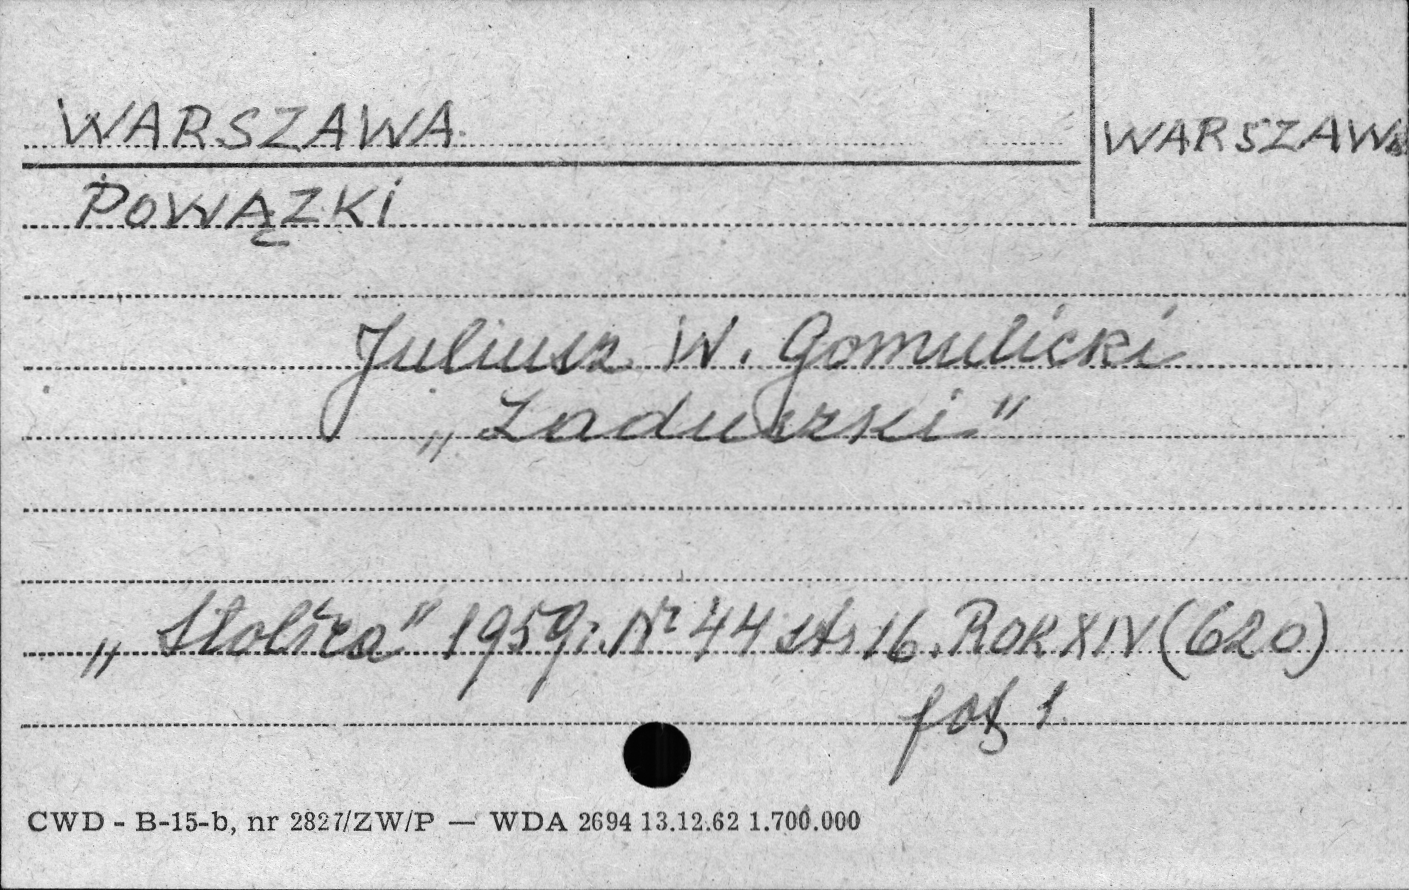 WARSZAWA
WARSZAWA
POWĄZKI
Juliusz W. Gomulicki
„Zaduszki"
„Stolica" 1959 r. Nr 44 str 16. ROK XIV (620)
fot 1
CWD - B-15-b, nr 2827/ZW/P — WDA 2694 13.12.62 1.700.000